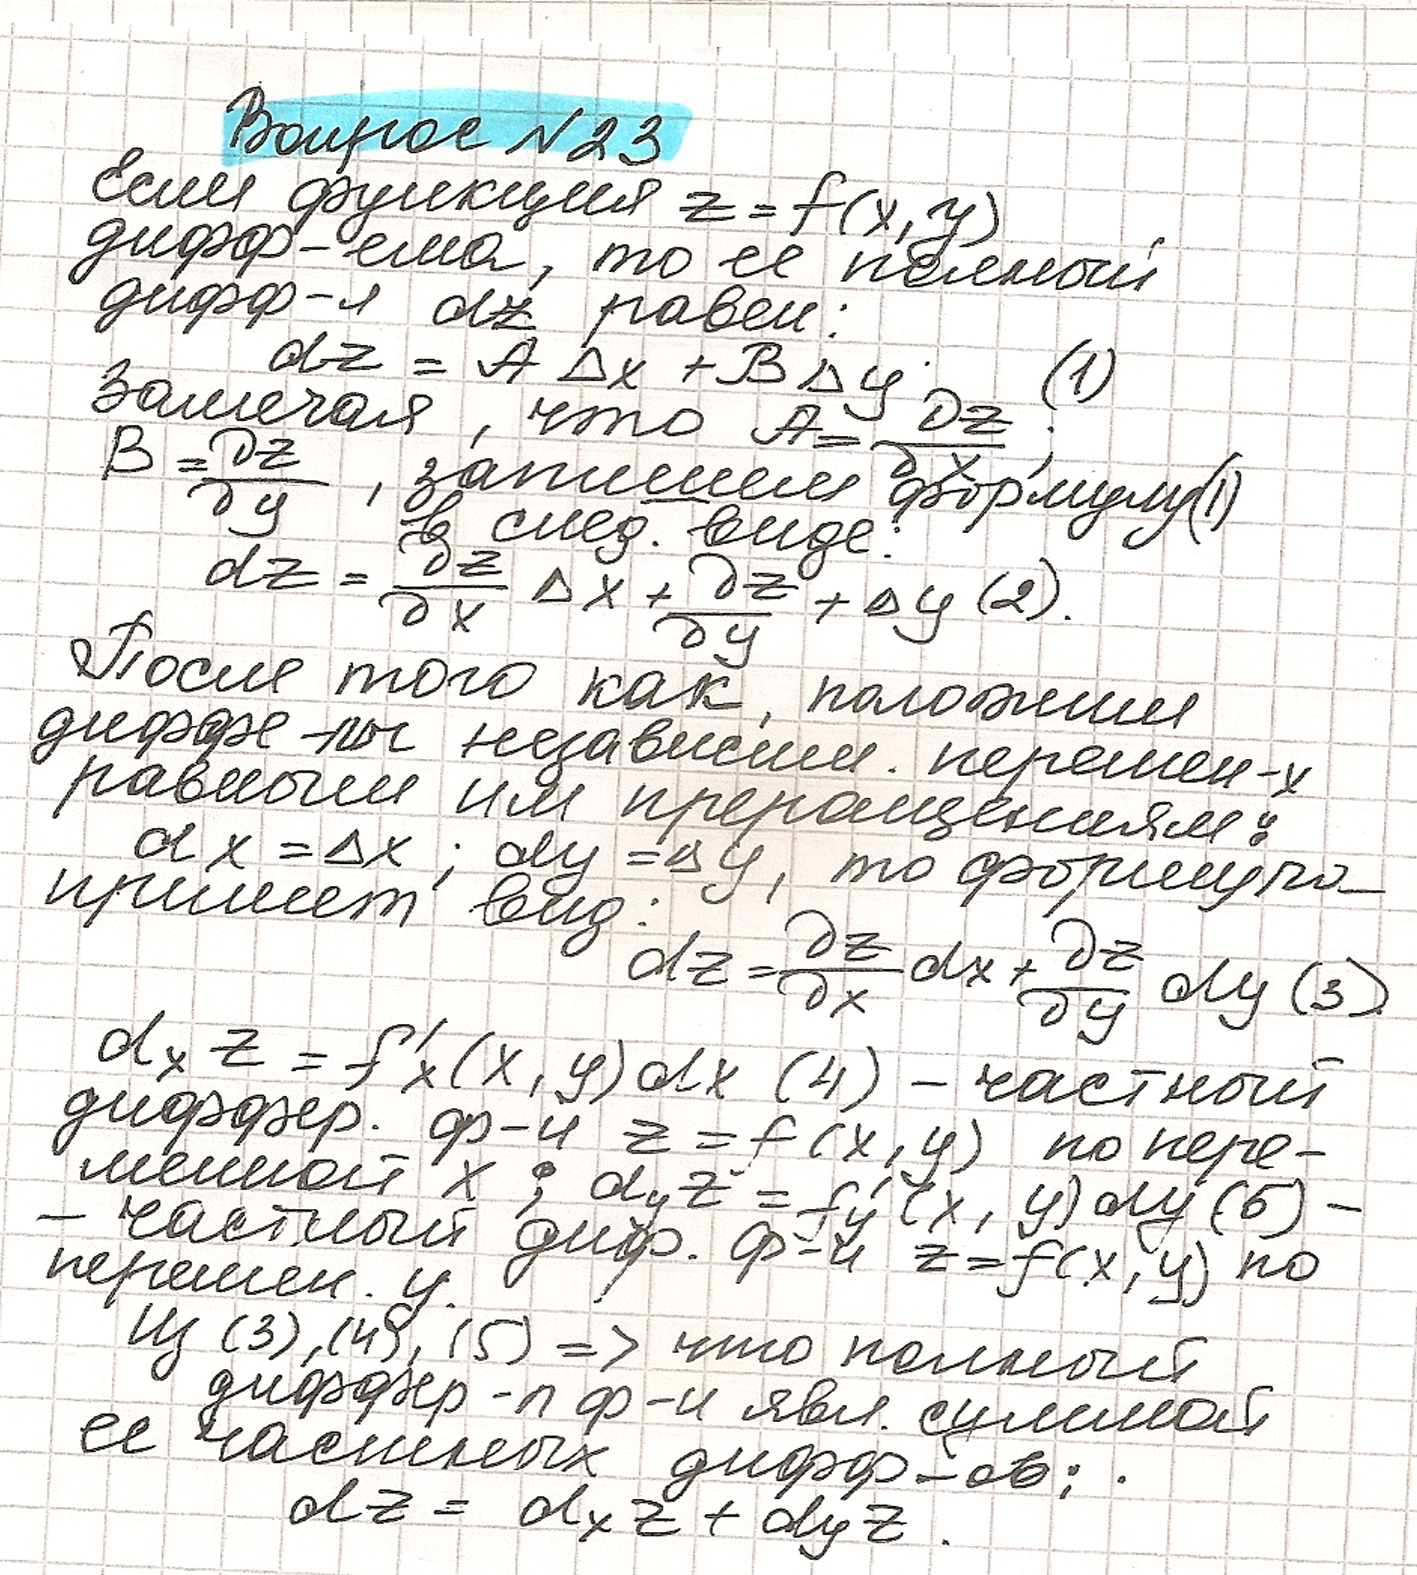 Вопрос №23
Если функция z = f(x, y)
дифф-ема, то ее полный
дифф-л dz равен:
dz = A Δx + B Δy. (1)
Замечая, что A = ∂z/∂x;
B = ∂z/∂y, запишем формулу (1)
в след. виде:
dz = ∂z/∂x Δx + ∂z/∂y + Δy (2).
После того как, положим
диффе-лы независим. перемен-х
равными им преращениям:
dx = Δx ; dy = Δy, то формула
примет вид:
dz = ∂z/∂x dx + ∂z/∂y dy (3)
dₓz = f'ₓ(x, y)dx (4) – частный
диффер. ф-и z = f(x, y) по пере-
менной x ; d_y z = f'_y(x, y)dy (5) –
– частный диф. ф-и z = f(x, y) по
перемен. y.
Из (3), (4), (5) => что полный
диффер-л ф-и явл. суммой
ее частных дифф-ов:
dz = dₓz + d_y z.